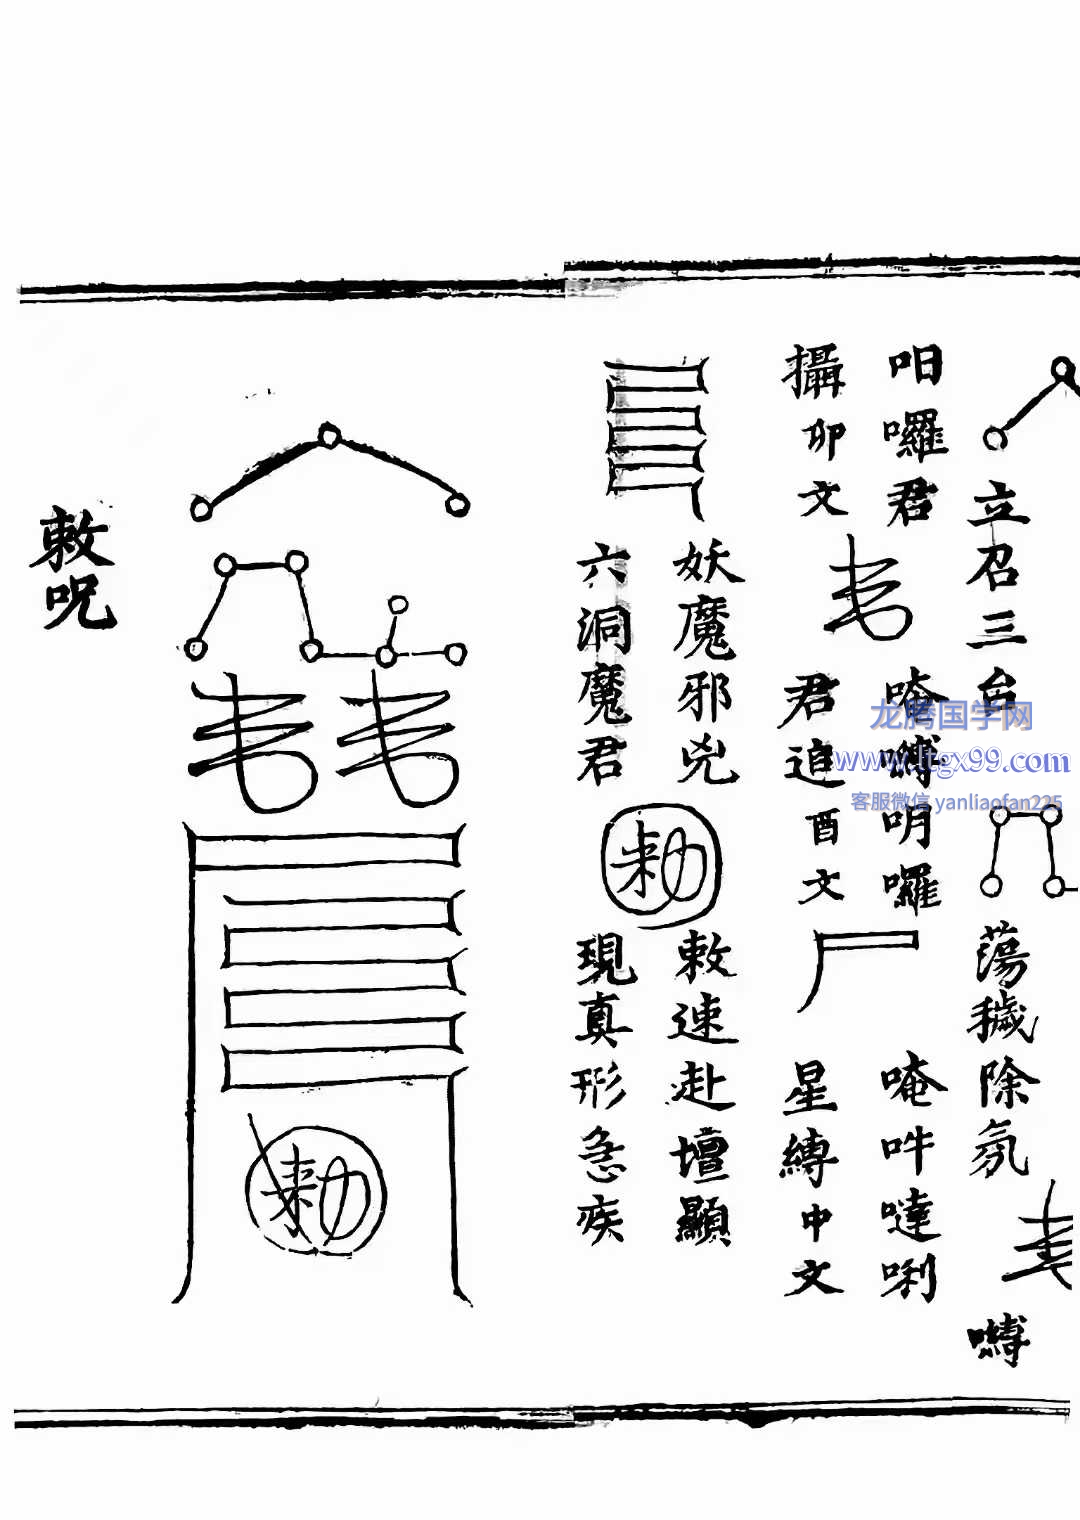 立召三台蕩穢除氛囀
呾囉君唵囀呍囉唵吽噠唎
攝卯文君追酉文星縛中文
妖魔邪兇敕速赴壇顯
六洞魔君勅現真形急疾
勅
敕呪
龙腾国学网
www.ltgx99.com
客服微信 yanliaofan225